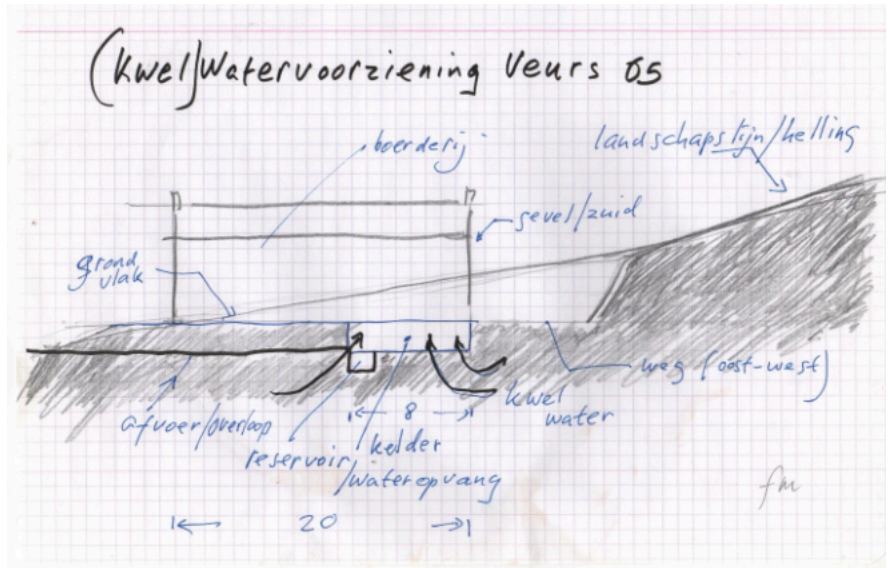 (Kwel)Watervoorziening Veurs 65
boerderij
landschapslijn/helling
gevel/zuid
grond
vlak
weg (oost-west)
kwel
water
afvoer/overloop
8
reservoir
kelder
/wateropvang
fm
20